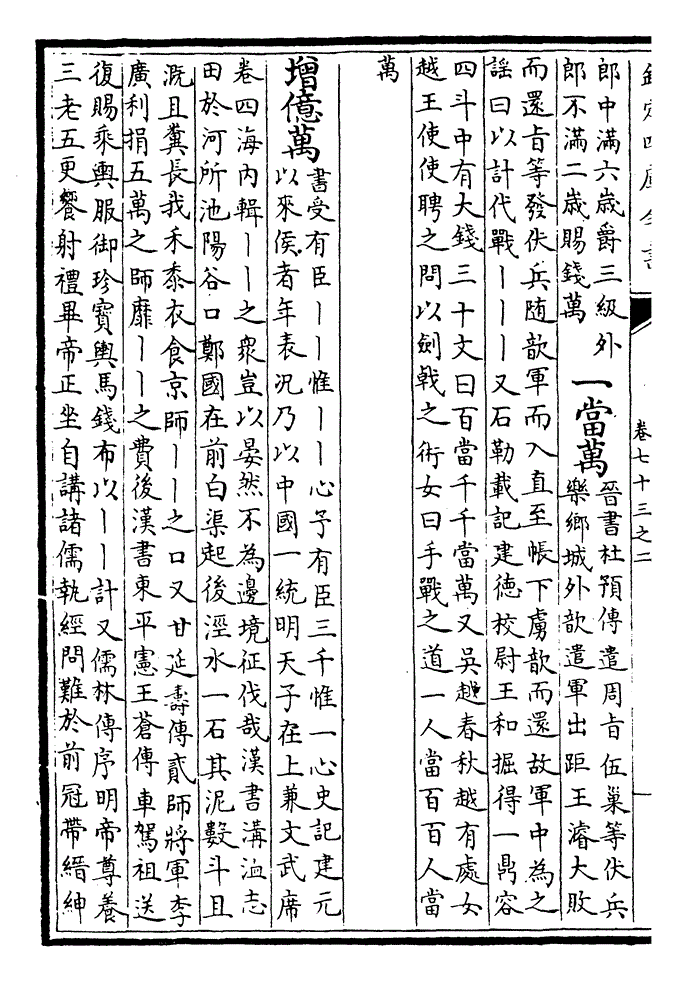 欽定四庫全書
卷七十三之二
郎中滿六歳爵三級外
郎不滿二歳賜錢萬
一當萬
晉書杜預傳遣周旨伍巢等伏兵
樂鄉城外歆遣軍出距王濬大敗
而還旨等發伏兵随歆軍而入直至帳下虜歆而還故軍中為之
謡曰以計代戰丨丨丨又石勒載記建德校尉王和掘得一鼎容
四斗中有大錢三十文曰百當千千當萬又吳越春秋越有處女
越王使使聘之問以劍㦸之術女曰手戰之道一人當百百人當
萬
增億萬
書受有臣丨丨惟丨丨心予有臣三千惟一心史記建元
以來侯者年表況乃以中國一統明天子在上兼文武席
卷四海内輯丨丨之衆豈以晏然不為邊境征伐哉漢書溝洫志
田於河所池陽谷口鄭國在前白渠起後涇水一石其泥數斗且
溉且糞長我禾黍衣食京師丨丨之口又甘延壽傳貳師將軍李
廣利捐五萬之師靡丨丨之費後漢書東平憲王蒼傳車駕祖送
復賜乘輿服御珍寶輿馬錢布以丨丨計又儒林傳序明帝尊養
三老五更饗射禮畢帝正坐自講諸儒執經問難於前冠帶縉紳